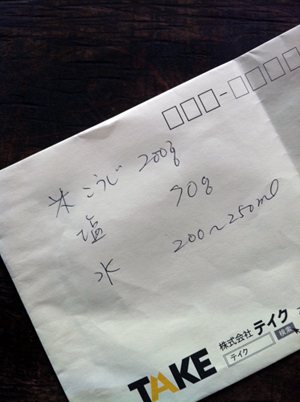 米こうじ 200g
塩 70g
水 200〜250ml
株式会社 テイク
TAKE
テイク 検索